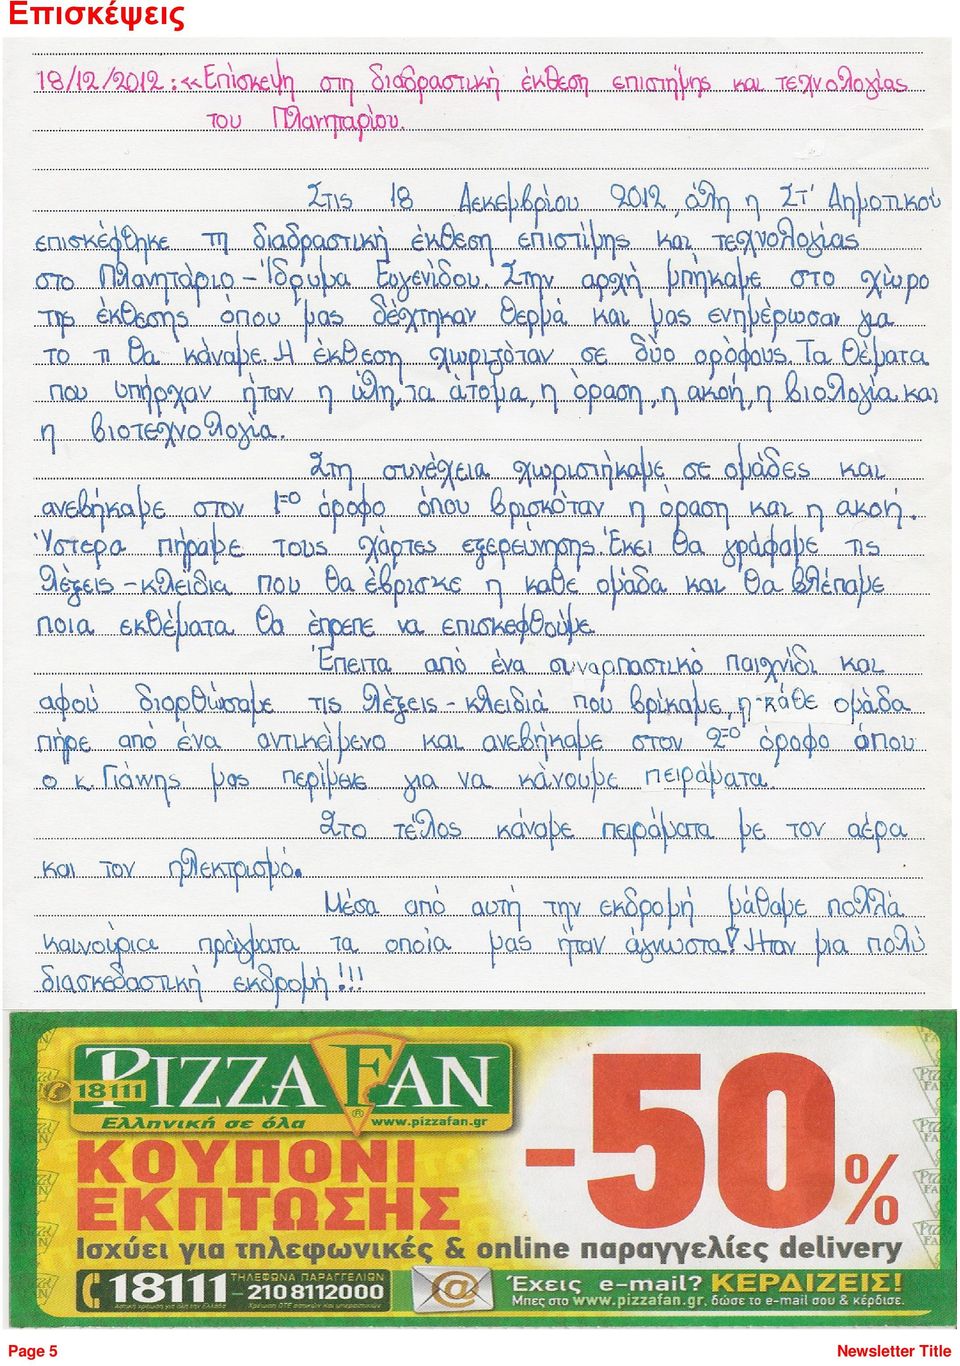 Επισκέψεις
18/12/2012: «Επίσκεψη στη διαδραστική έκθεση επιστήμης και τεχνολογίας
του Πλανηταρίου.
Στις 18 Δεκεμβρίου 2012, όλη η Στ' Δημοτικού
επισκέφθηκε τη διαδραστική έκθεση επιστήμης και τεχνολογίας
στο Πλανητάριο - Ίδρυμα Ευγενίδου. Στην αρχή μπήκαμε στο χώρο
της έκθεσης όπου μας δέχτηκαν θερμά και μας ενημέρωσαν για
το τι θα κάναμε. Η έκθεση χωριζόταν σε δύο ορόφους. Τα θέματα
που υπήρχαν ήταν η ύλη, τα άτομα, η όραση, η ακοή, η βιολογία και
η βιοτεχνολογία.
Στη συνέχεια χωριστήκαμε σε ομάδες και
ανεβήκαμε στον 1ο όροφο όπου βρισκόταν η όραση και η ακοή.
Ύστερα πήραμε τους χάρτες εξερεύνησης. Εκεί θα γράφαμε τις
λέξεις - κλειδιά που θα έβρισκε η κάθε ομάδα και θα βλέπαμε
ποια εκθέματα θα έπρεπε να επισκεφθούμε.
Έπειτα από ένα συναρπαστικό παιχνίδι και
αφού διορθώσαμε τις λέξεις - κλειδιά που βρίκαμε, η κάθε ομάδα
πήρε από ένα αντικείμενο και ανεβήκαμε στον 2ο όροφο όπου
ο κ. Γιάννης μας περίμενε για να κάνουμε πειράματα.
Στο τέλος κάναμε πειράματα με τον αέρα
και τον ηλεκτρισμό.
Μέσα από αυτή την εκδρομή μάθαμε πολλά
καινούρια πράγματα τα οποία μας ήταν άγνωστα! Ήταν μια πολύ
διασκεδαστική εκδρομή!!!
18111 PIZZA FAN ®
Ελληνική σε όλα www.pizzafan.gr
ΚΟΥΠΟΝΙ
ΕΚΠΤΩΣΗΣ
-50%
Ισχύει για τηλεφωνικές & online παραγγελίες delivery
18111 ΤΗΛΕΦΩΝΑ ΠΑΡΑΓΓΕΛΙΩΝ
- 210 8112000
Αστική χρέωση για όλη την Ελλάδα Χρέωση ΟΤΕ αστικών και υπεραστικών
@ Έχεις e-mail? ΚΕΡΔΙΖΕΙΣ!
Μπες στο www.pizzafan.gr, δώσε το e-mail σου & κέρδισε.
Page 5 Newsletter Title